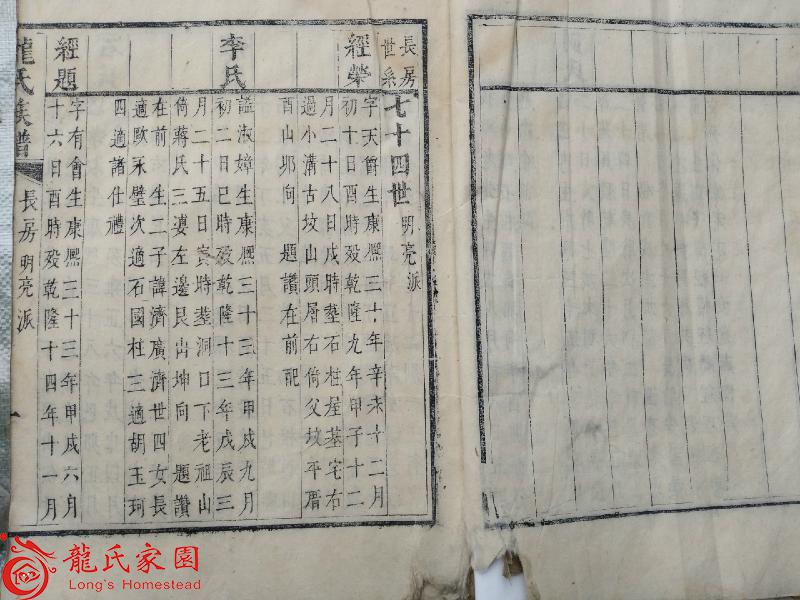 長房
世系
七十四世 明亮派
經榮
字天爵生康熈三十年辛未十二月
初十日酉時殁乾隆九年甲子十二
月二十八日戌時塟石柱屋墓宅右
過小溝古坟山頭層右倚父坟平厝
酉山夘向 題讚在前配
李氏
謚淑嫜生康熈三十三年甲戍九月
初二日巳時殁乾隆十三年戊辰三
月二十五日寅時塟洞口下老祖山
倚蔣氏三婆左邊艮山坤向 題讚
在前 生二子諱濟廣濟世四女長
適歐永璧次適石國柱三適胡玉珂
四適諸仕禮
經題
字有會生康熈三十三年甲戍六月
十六日酉時殁乾隆十四年十一月
龍氏族譜
長房明亮派
一
龍氏家園
Long's Homestead